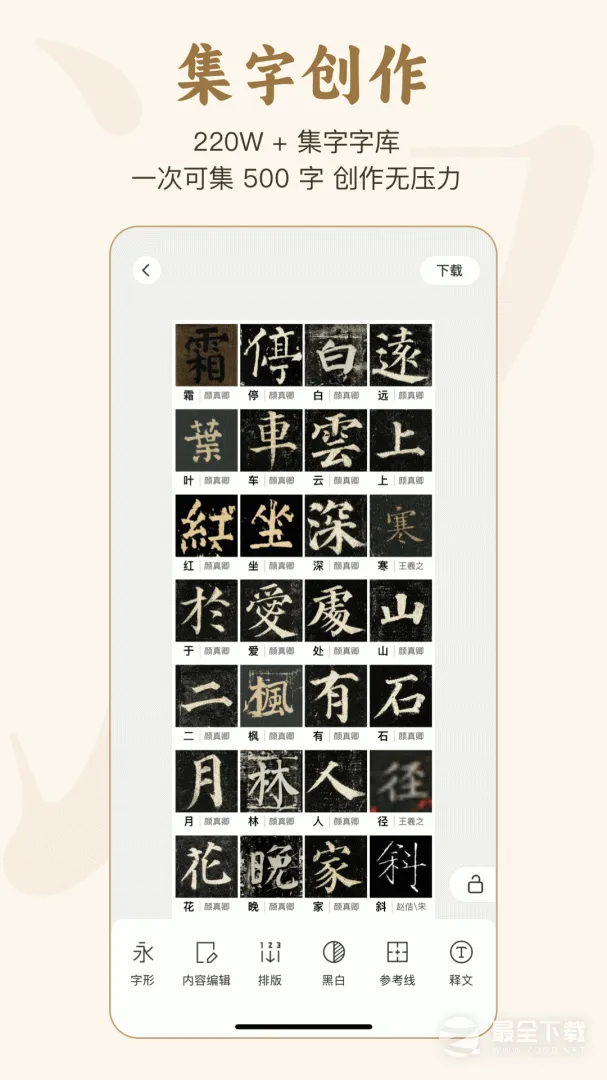 集字创作
220W + 集字字库
一次可集 500 字 创作无压力
下载
霜 停 白 遠
霜 颜真卿 停 颜真卿 白 颜真卿 远 颜真卿
葉 車 雲 上
叶 颜真卿 车 颜真卿 云 颜真卿 上 颜真卿
紅 坐 深 寒
红 颜真卿 坐 颜真卿 深 颜真卿 寒 王羲之
於 愛 處 山
于 颜真卿 爱 颜真卿 处 颜真卿 山 颜真卿
二 楓 有 石
二 颜真卿 枫 颜真卿 有 颜真卿 石 颜真卿
月 林 人 径
月 颜真卿 林 颜真卿 人 颜真卿 径 王羲之
花 晚 家 斜
花 颜真卿 晚 颜真卿 家 颜真卿 斜 赵佶\宋
永 1 2 3 T
字形 内容编辑 排版 黑白 参考线 释文
最全下载